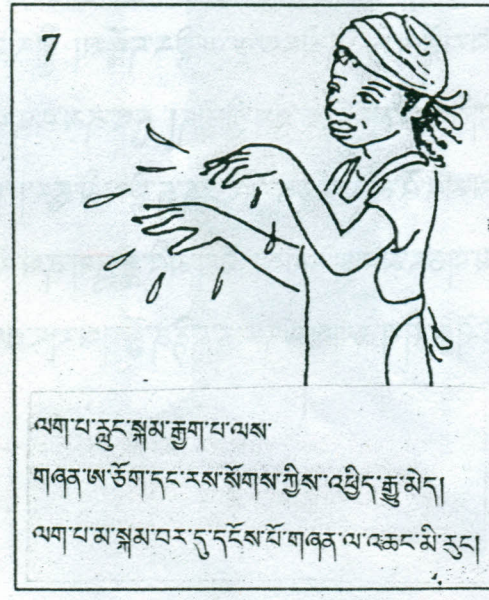 7
ལག་པ་རླུང་སྐམ་རྒྱག་པ་ལས་
གཞན་ཨ་ཅོག་དང་རས་སོགས་ཀྱིས་འཕྱིད་རྒྱུ་མེད།
ལག་པ་མ་སྐམ་བར་དུ་དངོས་པོ་གཞན་ལ་འཆང་མི་རུང།